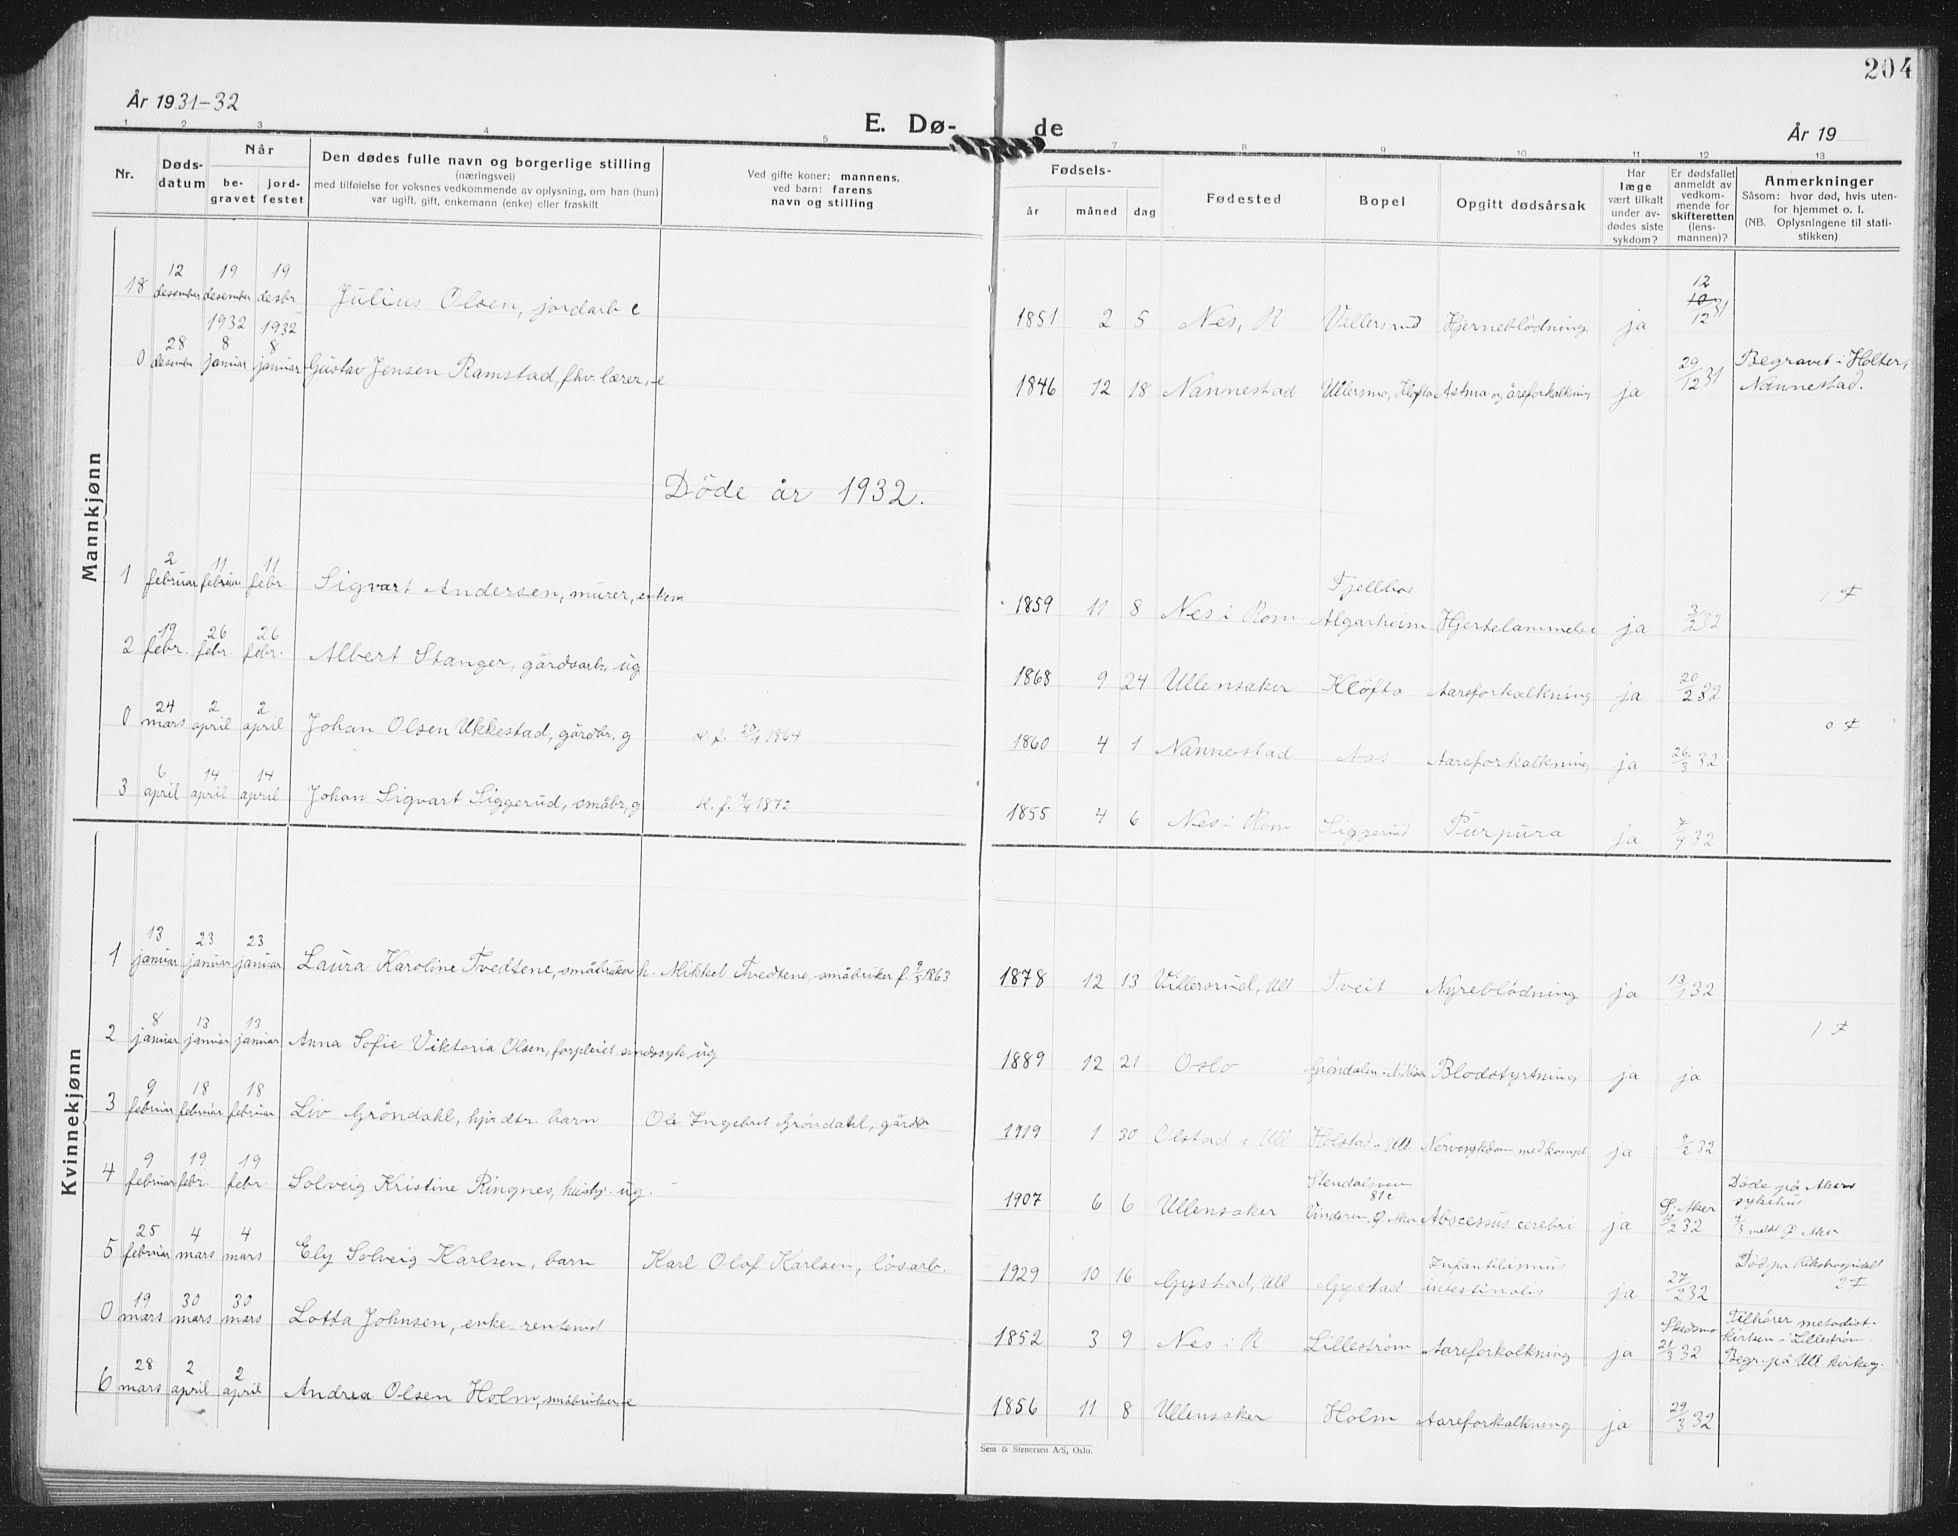 204
År 1931-32
E. Dø-
de
År 19
1 2 3 4 5 7 8 9 10 11 12 13
Nr.
Døds-
datum
Når
be-
gravet
jord-
festet
Den dødes fulle navn og borgerlige stilling
(næringsvei)
med tilføielse for voksnes vedkommende av oplysning, om han (hun)
var ugift, gift, enkemann (enke) eller fraskilt
Ved gifte koner: mannens,
ved barn: farens
navn og stilling
Fødsels-
år måned dag
Fødested
Bopel
Opgitt dødsårsak
Har
læge
vært tilkalt
under av-
dødes siste
sykdom?
Er dødsfallet
anmeldt av
vedkom-
mende for
skifteretten
(lens-
mannen)?
Anmerkninger
Såsom: hvor død, hvis uten-
for hjemmet o. l.
(NB. Oplysningene til stati-
stikken)
Mannkjønn
18 12 desember 19 desember 19 desbr. Julius Olsen, jordarb e 1851 2 5 Nes, R Villersrud Hjerneblödning ja 12/12 31
1932 1932
0 28 desember 8 januar 8 januar Gustav Jensen Ramstad, fhv. lærer, e 1846 12 18 Nannestad Ullersmo, Kløfta Astma og åreforkalkning ja 29/12 31 Begravet i Holter, Nannestad.
Döde år 1932.
1 2 februar 11 februar 11 febr. Sigvart Andersen, murer, enkem 1859 11 8 Nes i Rom. Fjellhoe Algarheim Hjertelammelse ja 3/2 32 1 F
2 19 febr. 26 febr. 26 febr. Albert Stanger, gårdsarb., ug 1868 9 24 Ullensaker Kløfta Aareforkalkning ja 20/2 32
0 24 mars 2 april 2 april Johan Olsen Ukkestad, gårdbr, g k. f. 20/4 1864 1860 4 1 Nannestad Aas Aareforkalkning ja 26/3 32 0 F
3 6 april 14 april 14 april Johan Sigvart Siggerud, småbr, g k. f. 4/4 1872 1855 4 6 Nes i Rom Siggerud Purpura ja 7/4 32
Kvinnekjønn
1 13 januar 23 januar 23 januar Laura Karoline Tvedtene, småbruker h. Mikkel Tvedtene, småbruker f. 9/5 1863 1878 12 13 Villersrud, Ull Tveit Nyreblödning ja 13/1 32
2 8 januar 13 januar 13 januar Anna Sofie Viktoria Olsen, forpleiet sindssyk ug 1889 12 21 Oslo Gröndalen i N. Blodstyrtning ja ja 1 F
3 9 februar 18 februar 18 februar Liv Gröndahl, hjv. dtr. barn Ole Ingebret Gröndahl, gårdbr 1919 1 30 Olstad i Ull Holstad i Ull Nervesykdom med kompl ja 9/2 32
4 9 februar 19 febr. 19 febr Solveig Kristine Ringnes, husbj. ug. 1907 6 6 Ullensaker Stendalsven 81c Vinderen, Ø. Aker Abscessus cerebri ja S. Aker 10/2 32 Döde på Akers sykehus 4/3 meldt Ø Aker
5 25 februar 4 mars 4 mars Ely Solveig Karlsen, barn Karl Olof Karlsen, løsarb. 1929 10 16 Gystad, Ull Gystad Infantilismus intestinalis ja 27/2 32 Död på Rikshospitalet 2 F
0 19 mars 30 mars 30 mars Lotta Johnsen, enke. rentenist 1852 3 9 Nes i R Lillestrøm Aareforkalkning ja Skedsmo 21/3 32 Tilhører metodist- kirken i Lillestrøm. Begr. på Ull kirkeg.
6 28 mars 2 april 2 april Andrea Olsen Holm, småbruker, e 1856 11 8 Ullensaker Holm Aareforkalkning ja 29/3 32
Sem & Stenersen A/S, Oslo.